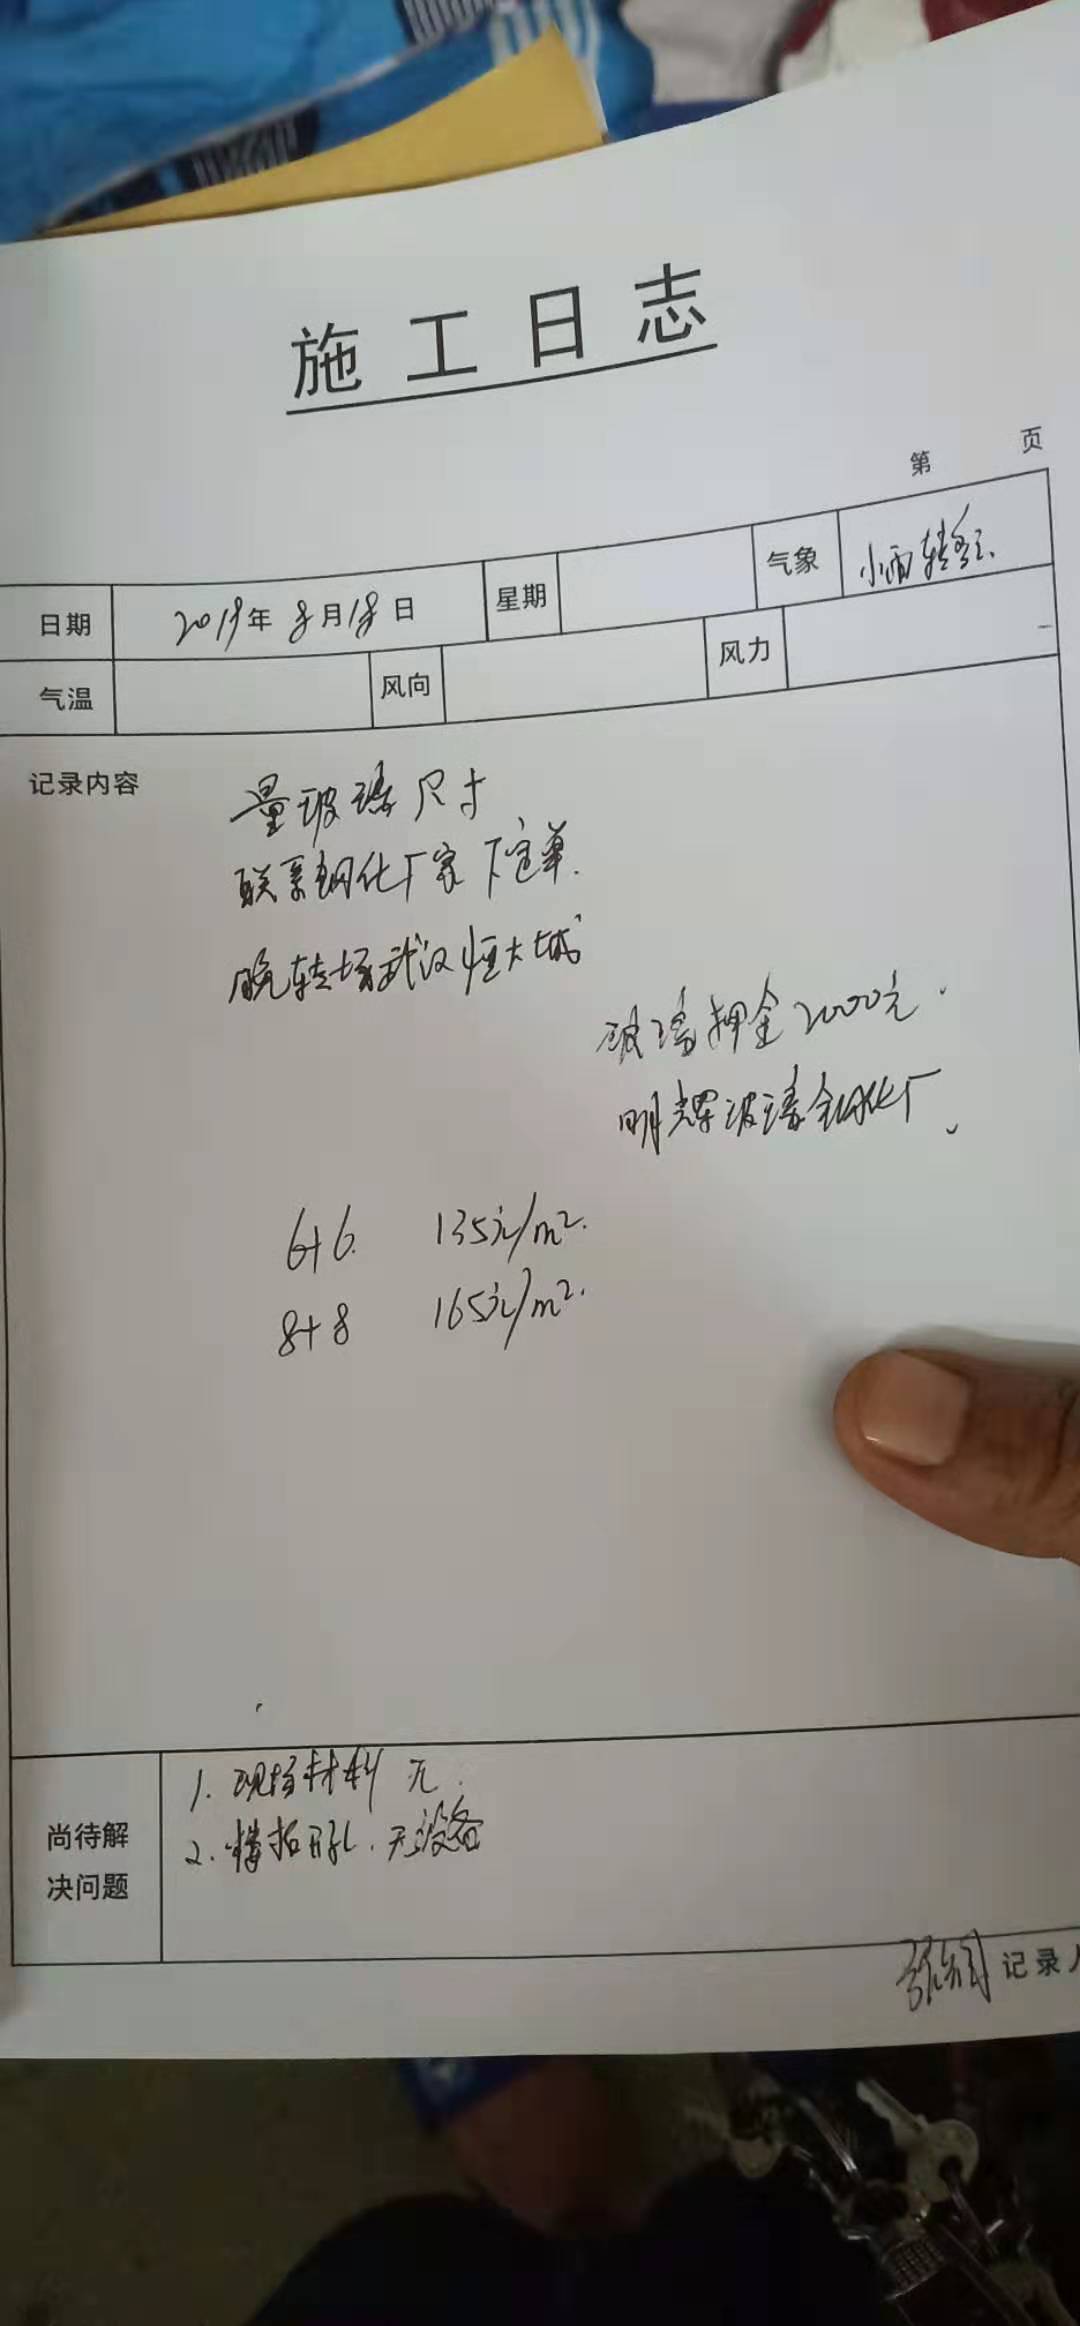 施工日志
第 页
日期 2019年8月18日 星期 气象 小雨转多云
气温 风向 风力
记录内容
量玻璃尺寸
联系钢化厂家下定单.
晚转场武汉恒大城
玻璃押金2000元.
明辉玻璃钢化厂.
6+6. 135元/m².
8+8 165元/m².
尚待解决问题
1. 现场材料 无.
2. 开孔. 无设备
记录人